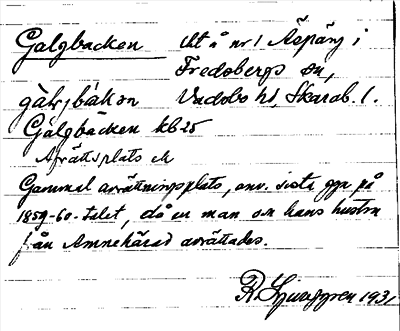 Galgbacken Ut å nr 1 Äspäng i
Fredsbergs sn,
gàlvjbákən Vadsbo hd, Skarab. l.
Galgbacken kb 25
Avrättsplats ek
Gammal avrättningsplats, anv. sista ggn på
1859-60-talet, då en man och hans hustru
från Amnehärad avrättades.
R. Ljunggren 1931